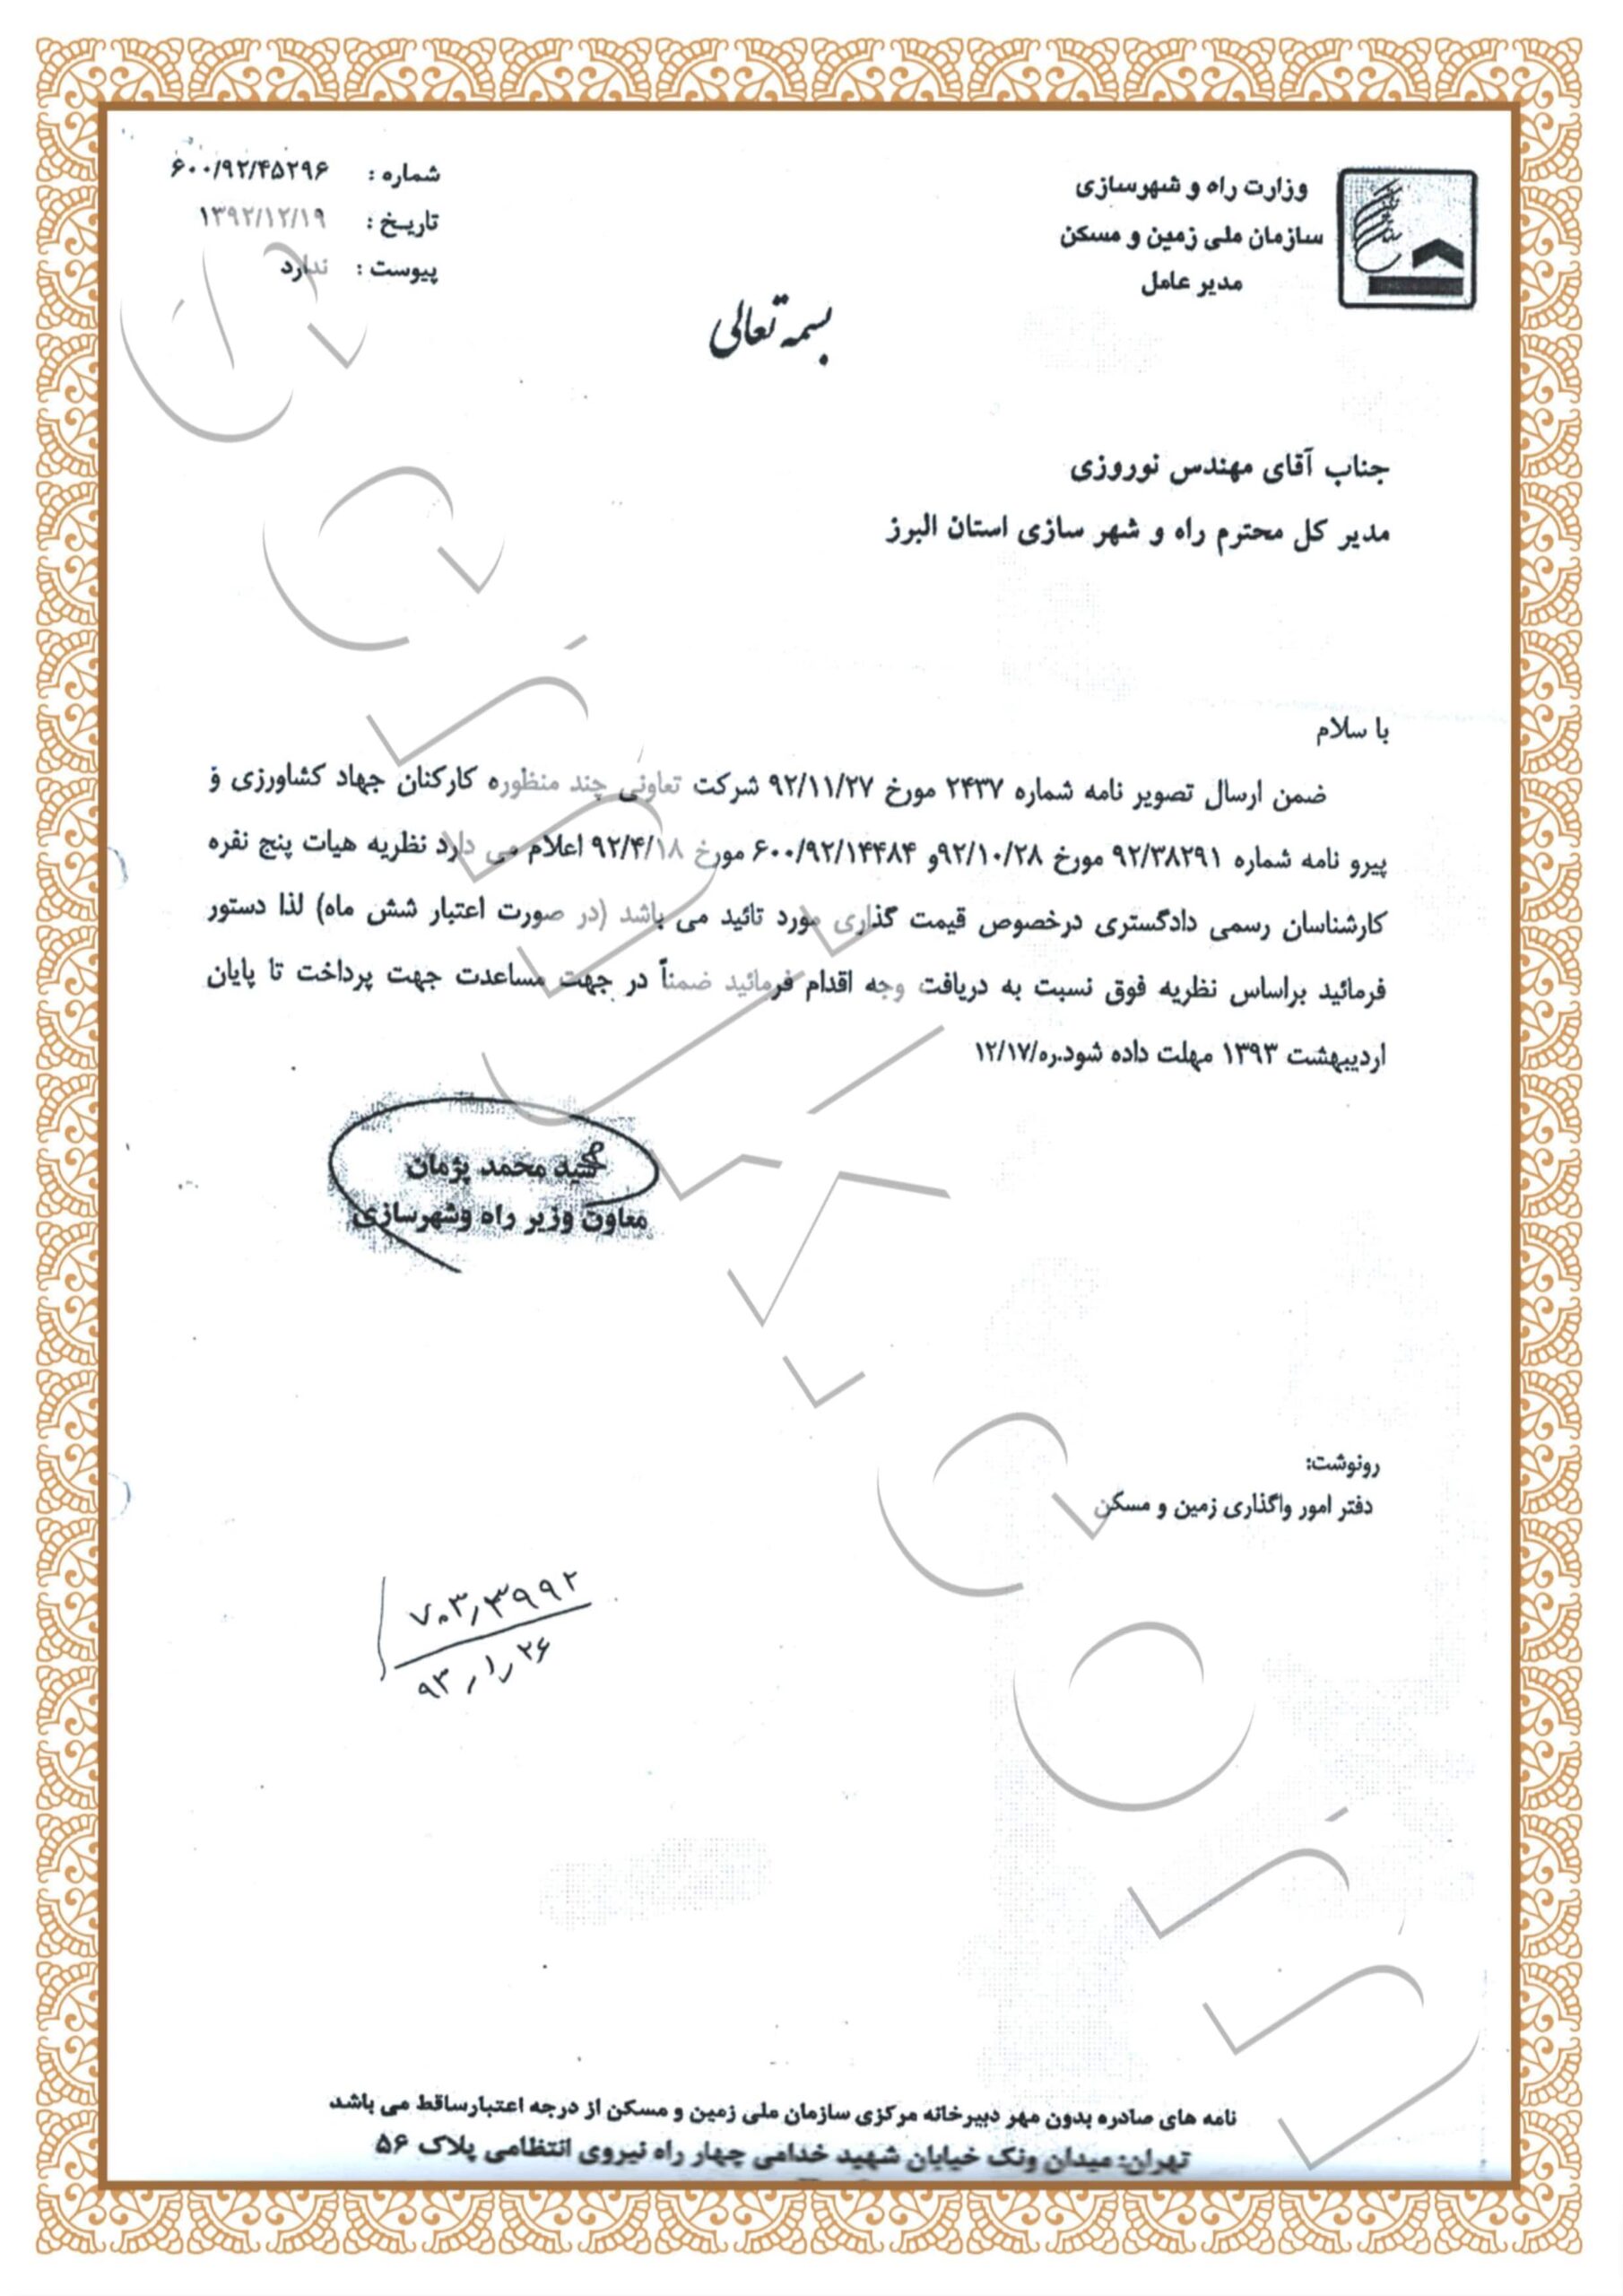 وزارت راه و شهرسازی
سازمان ملی زمین و مسکن
مدیر عامل
شماره : ۶۰۰/۹۲/۴۵۲۹۶
تاریخ : ۱۳۹۲/۱۲/۱۹
پیوست : ندارد
بسمه تعالی
جناب آقای مهندس نوروزی
مدیر کل محترم راه و شهر سازی استان البرز
با سلام
ضمن ارسال تصویر نامه شماره ۲۴۳۷ مورخ ۹۲/۱۱/۲۷ شرکت تعاونی چند منظوره کارکنان جهاد کشاورزی و
پیرو نامه شماره ۹۲/۳۸۲۹۱ مورخ ۹۲/۱۰/۲۸و ۶۰۰/۹۲/۱۴۴۸۴ مورخ ۹۲/۴/۱۸ اعلام می دارد نظریه هیات پنج نفره
کارشناسان رسمی دادگستری درخصوص قیمت گذاری مورد تائید می باشد (در صورت اعتبار شش ماه) لذا دستور
فرمائید براساس نظریه فوق نسبت به دریافت وجه اقدام فرمائید ضمناً در جهت مساعدت جهت پرداخت تا پایان
اردیبهشت ۱۳۹۳ مهلت داده شود.ره/۱۲/۱۷
سید محمد پژمان
معاون وزیر راه وشهرسازی
رونوشت:
دفتر امور واگذاری زمین و مسکن
۷۰۳٫۳۹۹۲
۹۳٫۱٫۲۶
نامه های صادره بدون مهر دبیرخانه مرکزی سازمان ملی زمین و مسکن از درجه اعتبارساقط می باشد
تهران: میدان ونک خیابان شهید خدامی چهار راه نیروی انتظامی پلاک ۵۶